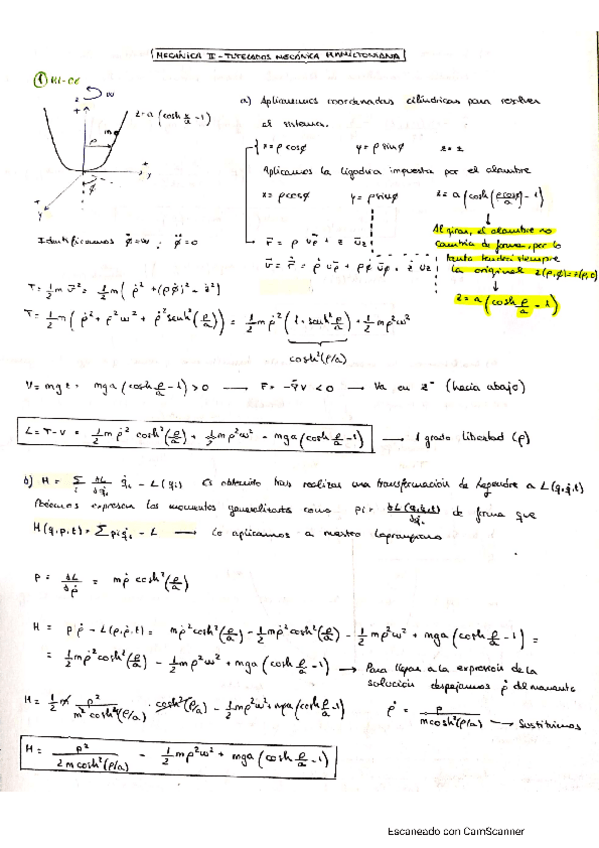 MECÁNICA II - TUTELADOS MECÁNICA HAMILTONIANA
① H1-C6
z ω
z = a (cosh x/a - 1)
m
ρ
x
y
φ
a) Aplicaremos coordenadas cilíndricas para resolver
el sistema.
x = ρ cosφ y = ρ sinφ z = z
Aplicamos la ligadura impuesta por el alambre
x = ρ cosφ y = ρ sinφ z = a (cosh (ρcosφ/a) - 1)
Al girar, el alambre no
cambia de forma, por lo
tanto tendrá siempre
la original z(ρ,φ) = z(ρ,t)
z = a (cosh ρ/a - 1)
Identificamos φ̇ = ω ; φ̈ = 0
r̄ = ρ uρ + z uz
v̄ = ṙ̄ = ρ̇ uρ + ρφ̇ uφ + ż uz
T = 1/2 m v̄² = 1/2 m (ρ̇² + (ρφ̇)² + ż²)
T = 1/2 m (ρ̇² + ρ²ω² + ρ̇² senh²(ρ/a)) = 1/2 mρ̇² (1 + senh² ρ/a) + 1/2 mρ²ω²
cosh²(ρ/a)
V = mgz = mga (cosh ρ/a - 1) > 0 → F = -∇V < 0 → Va en z⁻ (hacia abajo)
L = T - V = 1/2 mρ̇² cosh²(ρ/a) + 1/2 mρ²ω² - mga (cosh ρ/a - 1) → 1 grado libertad (ρ)
b) H = Σi ∂L/∂q̇i q̇i - L(qi) es obtenido tras realizar una transformación de Legendre a L(q,q̇,t)
Podemos expresar los momentos generalizados como pi = ∂L(q,q̇,t)/∂q̇i de forma que
H(q,p,t) = Σ pi q̇i - L → Lo aplicamos a nuestro Lagrangiano
p = ∂L/∂ρ̇ = mρ̇ cosh²(ρ/a)
H = pρ̇ - L(ρ,ρ̇,t) = mρ̇² cosh²(ρ/a) - 1/2 mρ̇² cosh²(ρ/a) - 1/2 mρ²ω² + mga (cosh ρ/a - 1) =
= 1/2 mρ̇² cosh²(ρ/a) - 1/2 mρ²ω² + mga (cosh ρ/a - 1) → Para llegar a la expresión de la
solución despejamos ρ̇ del momento
H = 1/2 m p²/m² cosh⁴(ρ/a) · cosh²(ρ/a) - 1/2 mρ²ω² + mga (cosh ρ/a - 1) ρ̇ = p/m cosh²(ρ/a) → Sustituimos
H = p²/2m cosh²(ρ/a) - 1/2 mρ²ω² + mga (cosh ρ/a - 1)
Escaneado con CamScanner